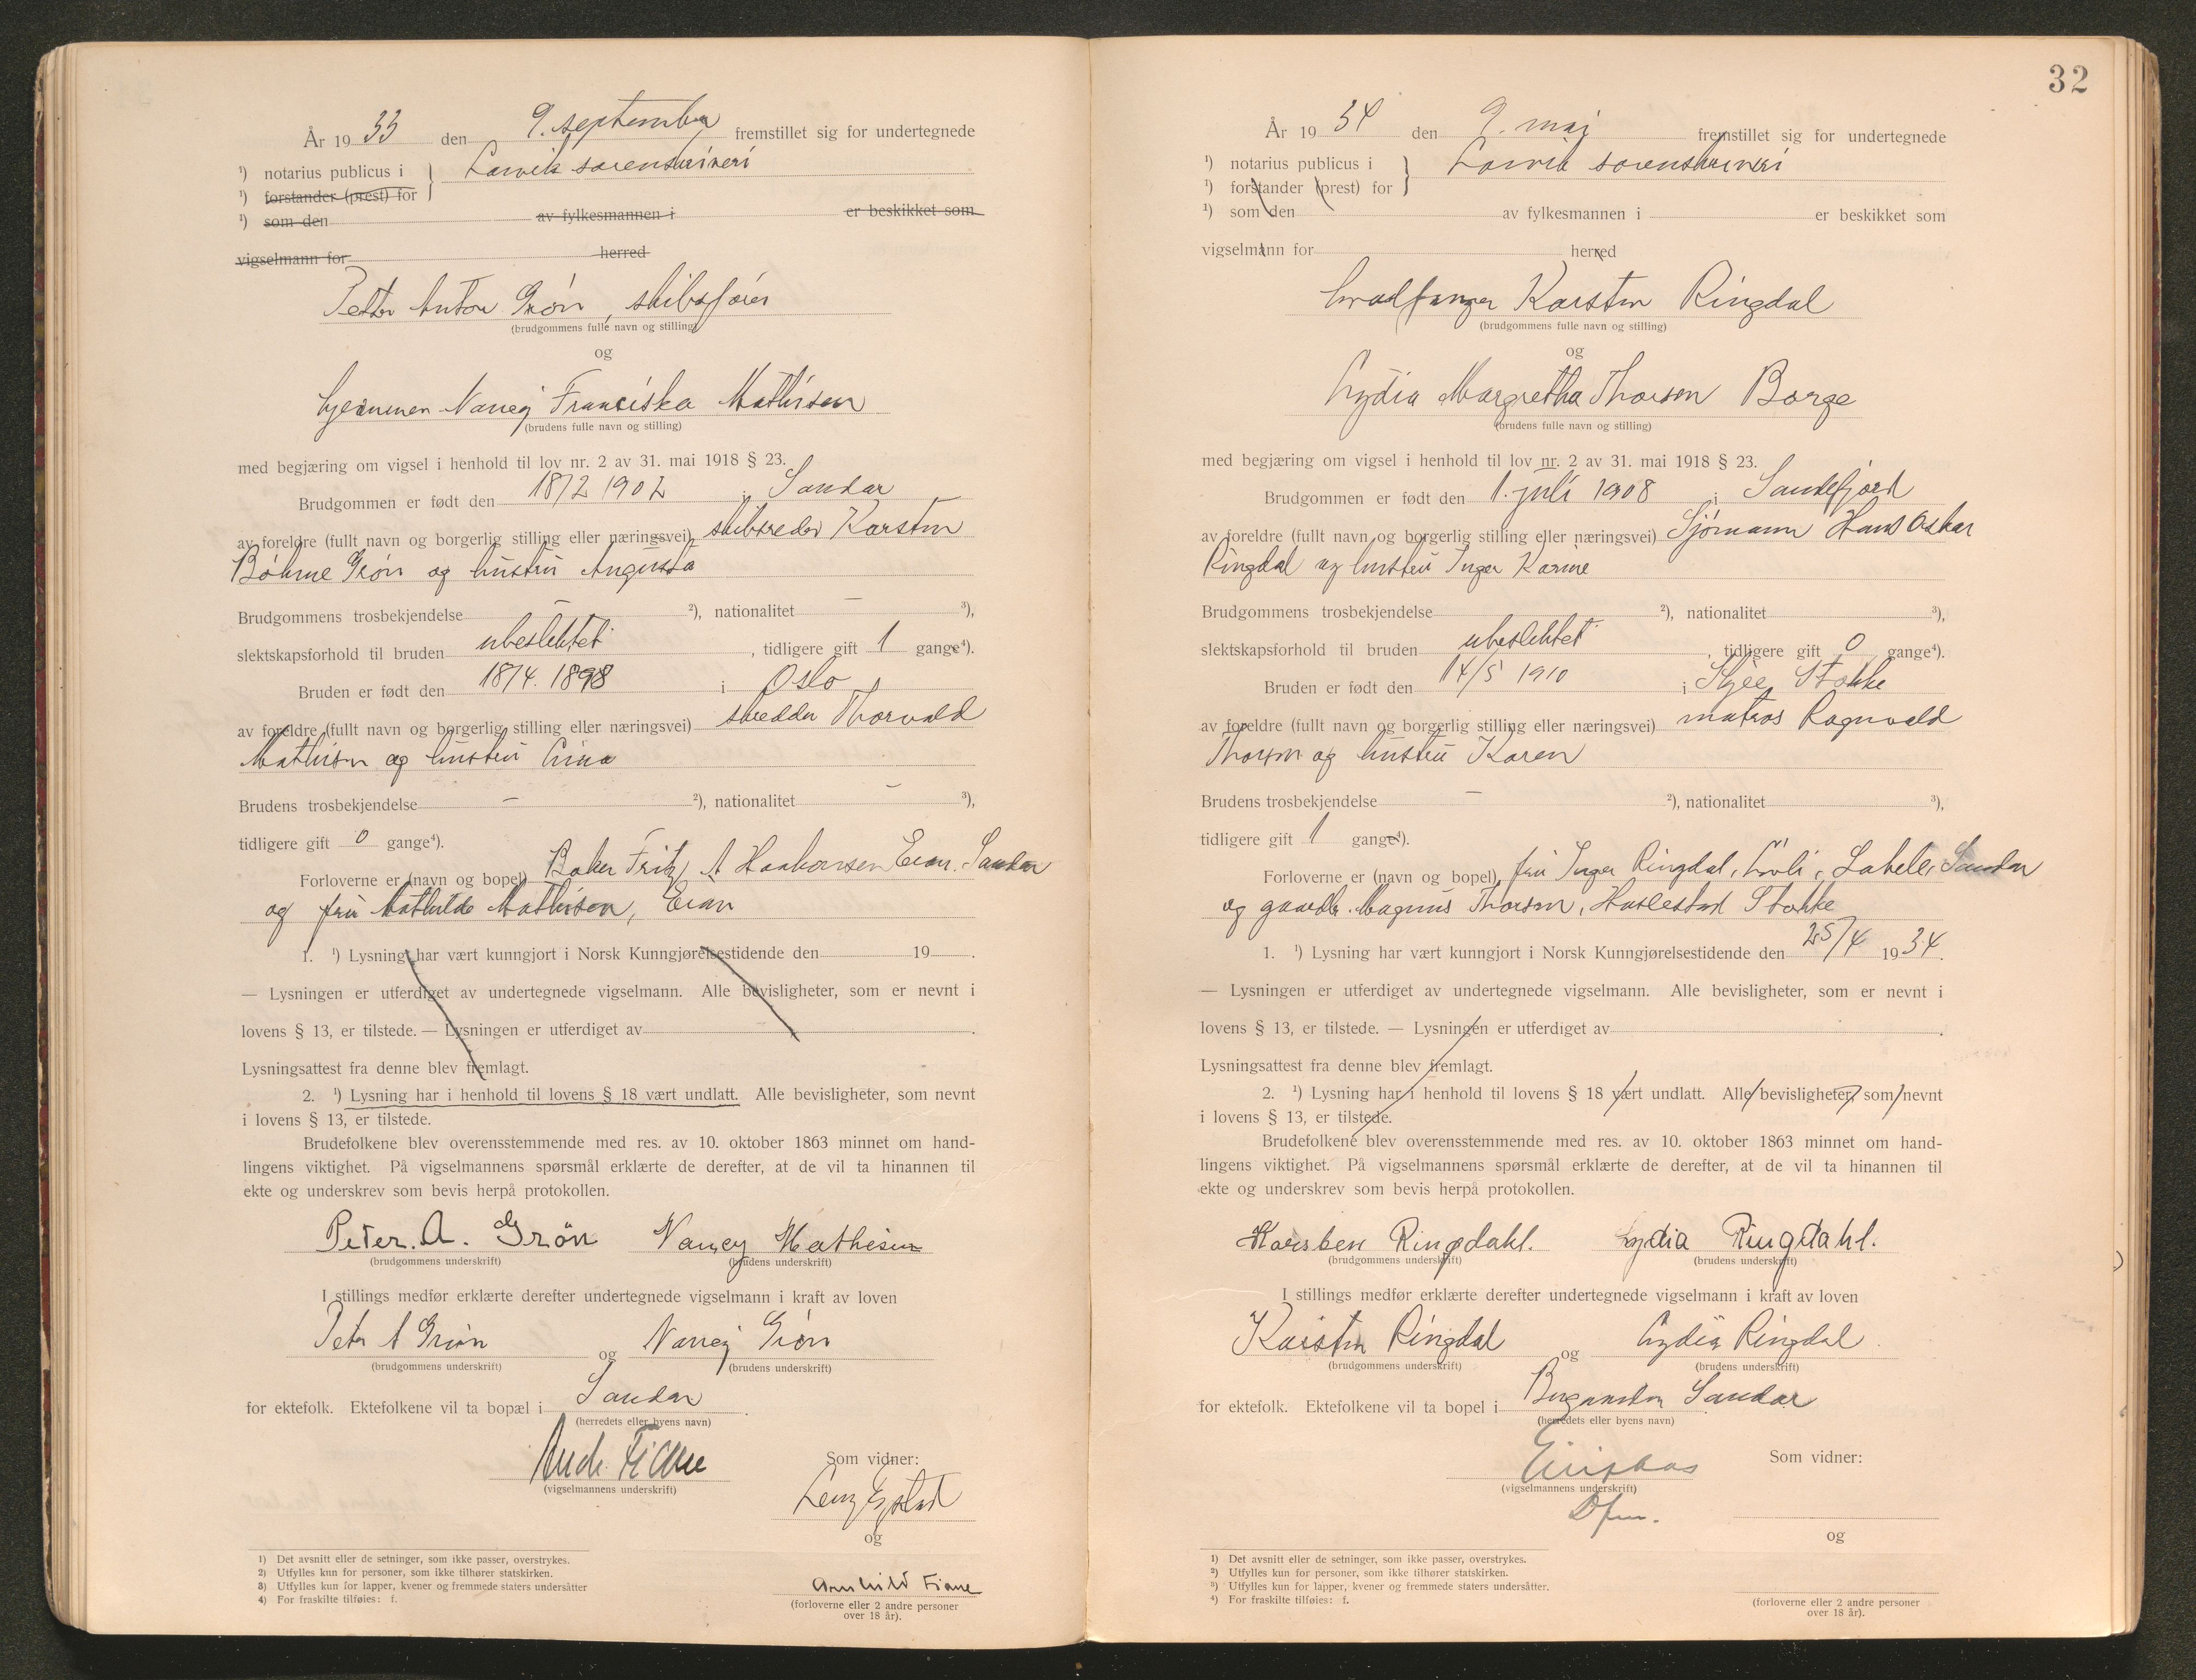 År 1933 den 9. september fremstillet sig for undertegnede
¹) notarius publicus i } Larvik sorenskriveri
¹) forstander (prest) for
¹) som den av fylkesmannen i er beskikket som
vigselmann for herred
Petter Anton Grön, skibsfører
(brudgommens fulle navn og stilling)
og
hjemmev. Nancy Franciska Mathisen
(brudens fulle navn og stilling)
med begjæring om vigsel i henhold til lov nr. 2 av 31. mai 1918 § 23.
Brudgommen er født den 18/2 1902 i Sandar
av foreldre (fullt navn og borgerlig stilling eller næringsvei) skibsreder Karsten
Böhme Grön og hustru Augusta
Brudgommens trosbekjendelse — ²), nationalitet — ³),
slektskapsforhold til bruden ubeslektet, tidligere gift 1 gange⁴).
Bruden er født den 18/4. 1898 i Oslo
av foreldre (fullt navn og borgerlig stilling eller næringsvei) skredder Thorvald
Mathisen og hustru Lina
Brudens trosbekjendelse — ²), nationalitet — ³),
tidligere gift 0 gange⁴).
Forloverne er (navn og bopel) Baker Fritz A Haakonsen Eian. Sandar
og fru Mathilde Mathisen, Eian
1. ¹) Lysning har vært kunngjort i Norsk Kunngjørelsestidende den 19 .
— Lysningen er utferdiget av undertegnede vigselmann. Alle bevisligheter, som er nevnt i
lovens § 13, er tilstede. — Lysningen er utferdiget av .
Lysningsattest fra denne blev fremlagt.
2. ¹) Lysning har i henhold til lovens § 18 vært undlatt. Alle bevisligheter, som nevnt
i lovens § 13, er tilstede.
Brudefolkene blev overensstemmende med res. av 10. oktober 1863 minnet om hand-
lingens viktighet. På vigselmannens spørsmål erklærte de derefter, at de vil ta hinannen til
ekte og underskrev som bevis herpå protokollen.
Peter. A. Grön Nancy Mathisen
(brudgommens underskrift) (brudens underskrift)
I stillings medfør erklærte derefter undertegnede vigselmann i kraft av loven
Peter A Grön og Nancy Grön
(brudgommens underskrift) (brudens underskrift)
for ektefolk. Ektefolkene vil ta bopæl i Sandar .
(herredets eller byens navn)
Fiane
(vigselmannens underskrift)
Som vidner:
og
Arnhild Fiane
(forloverne eller 2 andre personer
over 18 år).
1) Det avsnitt eller de setninger, som ikke passer, overstrykes.
2) Utfylles kun for personer, som ikke tilhører statskirken.
3) Utfylles kun for lapper, kvener og fremmede staters undersåtter
4) For fraskilte tilføies: f.
32
År 1934 den 9. mai fremstillet sig for undertegnede
¹) notarius publicus i } Larvik sorenskriveri
¹) forstander (prest) for
¹) som den av fylkesmannen i er beskikket som
vigselmann for herred
hvalfanger Karsten Ringdal
(brudgommens fulle navn og stilling)
og
Lydia Margretha Thorsen Borge
(brudens fulle navn og stilling)
med begjæring om vigsel i henhold til lov nr. 2 av 31. mai 1918 § 23.
Brudgommen er født den 1. juli 1908 i Sandefjord
av foreldre (fullt navn og borgerlig stilling eller næringsvei) Sjömann Hans Oskar
Ringdal og hustru Inger Karine
Brudgommens trosbekjendelse ²), nationalitet ³),
slektskapsforhold til bruden ubeslektet, tidligere gift 0 gange⁴).
Bruden er født den 14/5 1910 i Skjee, Stokke
av foreldre (fullt navn og borgerlig stilling eller næringsvei) matros Ragnvald
Thorsen og hustru Karen
Brudens trosbekjendelse — ²), nationalitet ³),
tidligere gift 1 gange⁴).
Forloverne er (navn og bopel), fru Inger Ringdal, Sandar
og gaardbr. Magnus Thorsen, Haslestad Stokke
1. ¹) Lysning har vært kunngjort i Norsk Kunngjørelsestidende den 25/4 1934.
— Lysningen er utferdiget av undertegnede vigselmann. Alle bevisligheter, som er nevnt i
lovens § 13, er tilstede. — Lysningen er utferdiget av .
Lysningsattest fra denne blev fremlagt.
2. ¹) Lysning har i henhold til lovens § 18 vært undlatt. Alle bevisligheter, som nevnt
i lovens § 13, er tilstede.
Brudefolkene blev overensstemmende med res. av 10. oktober 1863 minnet om hand-
lingens viktighet. På vigselmannens spørsmål erklærte de derefter, at de vil ta hinannen til
ekte og underskrev som bevis herpå protokollen.
Karsten Ringdahl. Lydia Ringdahl.
(brudgommens underskrift) (brudens underskrift)
I stillings medfør erklærte derefter undertegnede vigselmann i kraft av loven
Karsten Ringdal og Lydia Ringdal
(brudgommens underskrift) (brudens underskrift)
for ektefolk. Ektefolkene vil ta bopel i Bugården Sandar
(herredets eller byens navn)
(vigselmannens underskrift)
Dfm.
Som vidner:
og
(forloverne eller 2 andre personer
over 18 år).
1) Det avsnitt eller de setninger, som ikke passer, overstrykes.
²) Utfylles kun for personer, som ikke tilhører statskirken.
³) Utfylles kun for lapper, kvener og fremmede staters undersåtter.
⁴) For fraskilte tilføies: f.